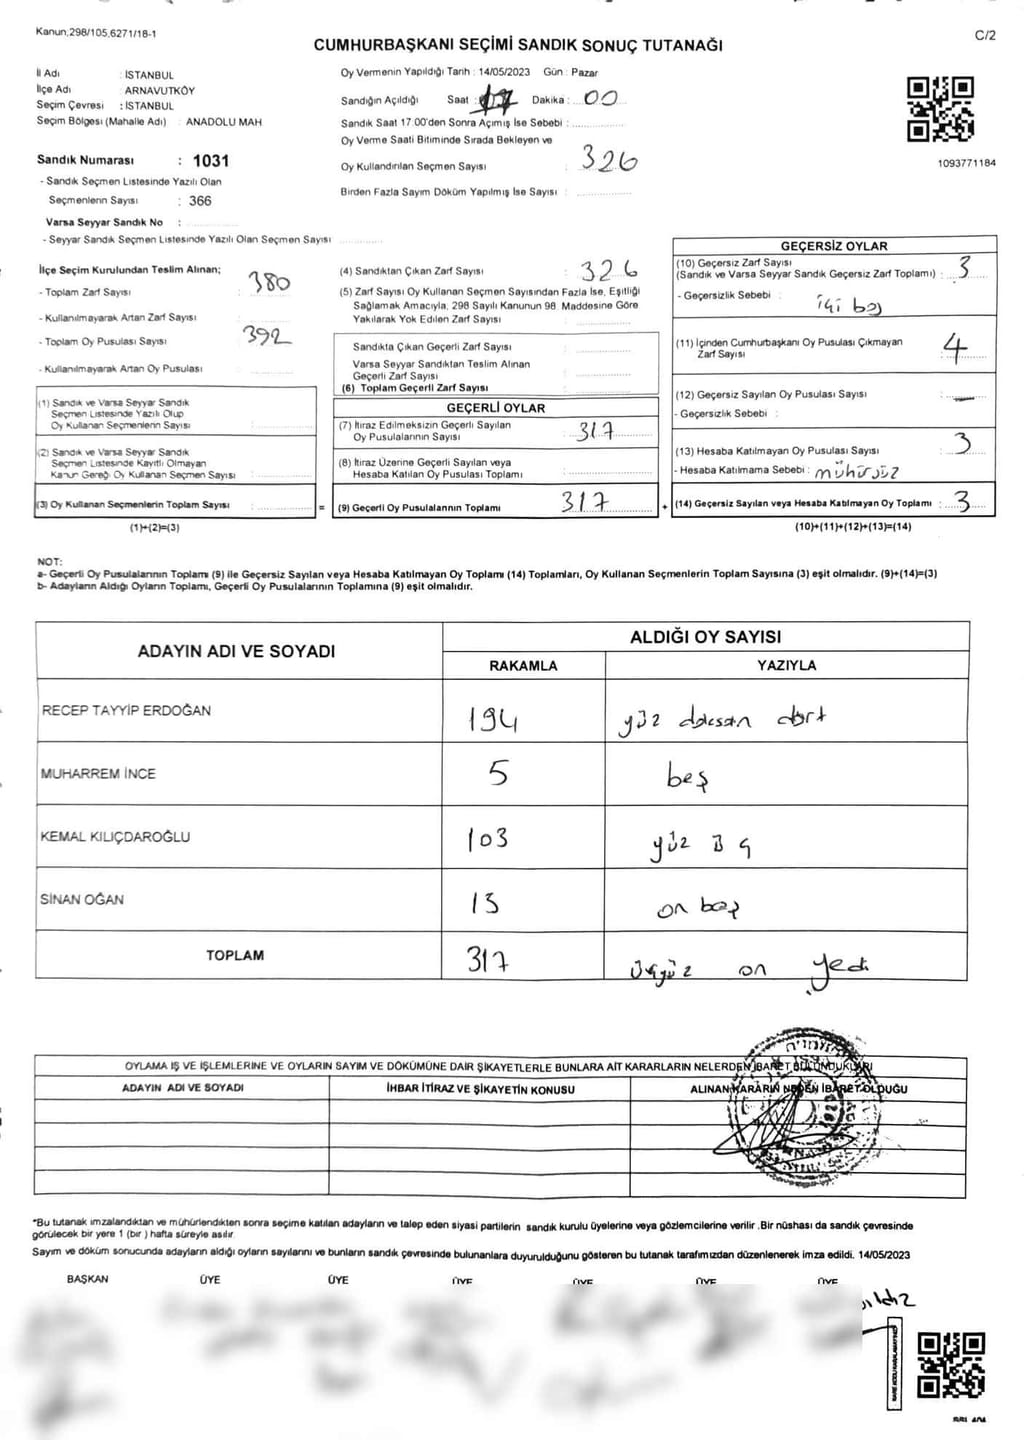 Kanun,298/105,6271/18-1
C/2
CUMHURBAŞKANI SEÇİMİ SANDIK SONUÇ TUTANAĞI
İl Adı : İSTANBUL
İlçe Adı : ARNAVUTKÖY
Seçim Çevresi : İSTANBUL
Seçim Bölgesi (Mahalle Adı) : ANADOLU MAH
Sandık Numarası : 1031
- Sandık Seçmen Listesinde Yazılı Olan
Seçmenlerin Sayısı : 366
Varsa Seyyar Sandık No :
- Seyyar Sandık Seçmen Listesinde Yazılı Olan Seçmen Sayısı
Oy Vermenin Yapıldığı Tarih : 14/05/2023 Gün : Pazar
Sandığın Açıldığı Saat : 17 Dakika : 00
Sandık Saat 17.00'den Sonra Açımış İse Sebebi :
Oy Verme Saati Bitiminde Sırada Bekleyen ve
Oy Kullandırılan Seçmen Sayısı : 326
Birden Fazla Sayım Döküm Yapılmış İse Sayısı :
1093771184
İlçe Seçim Kurulundan Teslim Alınan;
- Toplam Zarf Sayısı : 380
- Kullanılmayarak Artan Zarf Sayısı :
- Toplam Oy Pusulası Sayısı : 392
- Kullanılmayarak Artan Oy Pusulası :
(1) Sandık ve Varsa Seyyar Sandık
Seçmen Listesinde Yazılı Olup
Oy Kullanan Seçmenlerin Sayısı :
(2) Sandık ve Varsa Seyyar Sandık
Seçmen Listesinde Kayıtlı Olmayan
Kanun Gereği Oy Kullanan Seçmen Sayısı :
(3) Oy Kullanan Seçmenlerin Toplam Sayısı :
(1)+(2)=(3)
(4) Sandıktan Çıkan Zarf Sayısı : 326
(5) Zarf Sayısı Oy Kullanan Seçmen Sayısından Fazla İse, Eşitliği
Sağlamak Amacıyla, 298 Sayılı Kanunun 98 Maddesine Göre
Yakılarak Yok Edilen Zarf Sayısı :
Sandıkta Çıkan Geçerli Zarf Sayısı :
Varsa Seyyar Sandıktan Teslim Alınan
Geçerli Zarf Sayısı :
(6) Toplam Geçerli Zarf Sayısı :
GEÇERLİ OYLAR
(7) İtiraz Edilmeksizin Geçerli Sayılan
Oy Pusulalarının Sayısı : 317
(8) İtiraz Üzerine Geçerli Sayılan veya
Hesaba Katılan Oy Pusulası Toplamı :
= (9) Geçerli Oy Pusulalarının Toplamı : 317
GEÇERSİZ OYLAR
(10) Geçersiz Zarf Sayısı
(Sandık ve Varsa Seyyar Sandık Geçersiz Zarf Toplamı) : 3
- Geçersizlik Sebebi : içi boş
(11) İçinden Cumhurbaşkanı Oy Pusulası Çıkmayan
Zarf Sayısı : 4
(12) Geçersiz Sayılan Oy Pusulası Sayısı : —
- Geçersizlik Sebebi :
(13) Hesaba Katılmayan Oy Pusulası Sayısı : 3
- Hesaba Katılmama Sebebi : mühürsüz
+ (14) Geçersiz Sayılan veya Hesaba Katılmayan Oy Toplamı : 3
(10)+(11)+(12)+(13)=(14)
NOT:
a- Geçerli Oy Pusulalarının Toplamı (9) ile Geçersiz Sayılan veya Hesaba Katılmayan Oy Toplamı (14) Toplamları, Oy Kullanan Seçmenlerin Toplam Sayısına (3) eşit olmalıdır. (9)+(14)=(3)
b- Adayların Aldığı Oyların Toplamı, Geçerli Oy Pusulalarının Toplamına (9) eşit olmalıdır.
ADAYIN ADI VE SOYADI
ALDIĞI OY SAYISI
RAKAMLA YAZIYLA
RECEP TAYYİP ERDOĞAN 194 yüz doksan dört
MUHARREM İNCE 5 beş
KEMAL KILIÇDAROĞLU 103 yüz üç
SİNAN OĞAN 15 on beş
TOPLAM 317 üçyüz on yedi
OYLAMA İŞ VE İŞLEMLERİNE VE OYLARIN SAYIM VE DÖKÜMÜNE DAİR ŞİKAYETLERLE BUNLARA AİT KARARLARIN NELERDEN İBARET BULUNDUKLARI
ADAYIN ADI VE SOYADI İHBAR İTİRAZ VE ŞİKAYETİN KONUSU ALINAN KARARIN NEDEN İBARET OLDUĞU
*Bu tutanak imzalandıktan ve mühürlendikten sonra seçime katılan adayların ve talep eden siyasi partilerin sandık kurulu üyelerine veya gözlemcilerine verilir .Bir nüshası da sandık çevresinde
görülecek bir yere 1 (bir ) hafta süreyle asılır.
Sayım ve döküm sonucunda adayların aldığı oyların sayılarını ve bunların sandık çevresinde bulunanlara duyurulduğunu gösteren bu tutanak tarafımızdan düzenlenerek imza edildi. 14/05/2023
BAŞKAN ÜYE ÜYE ÜYE ÜYE ÜYE ÜYE